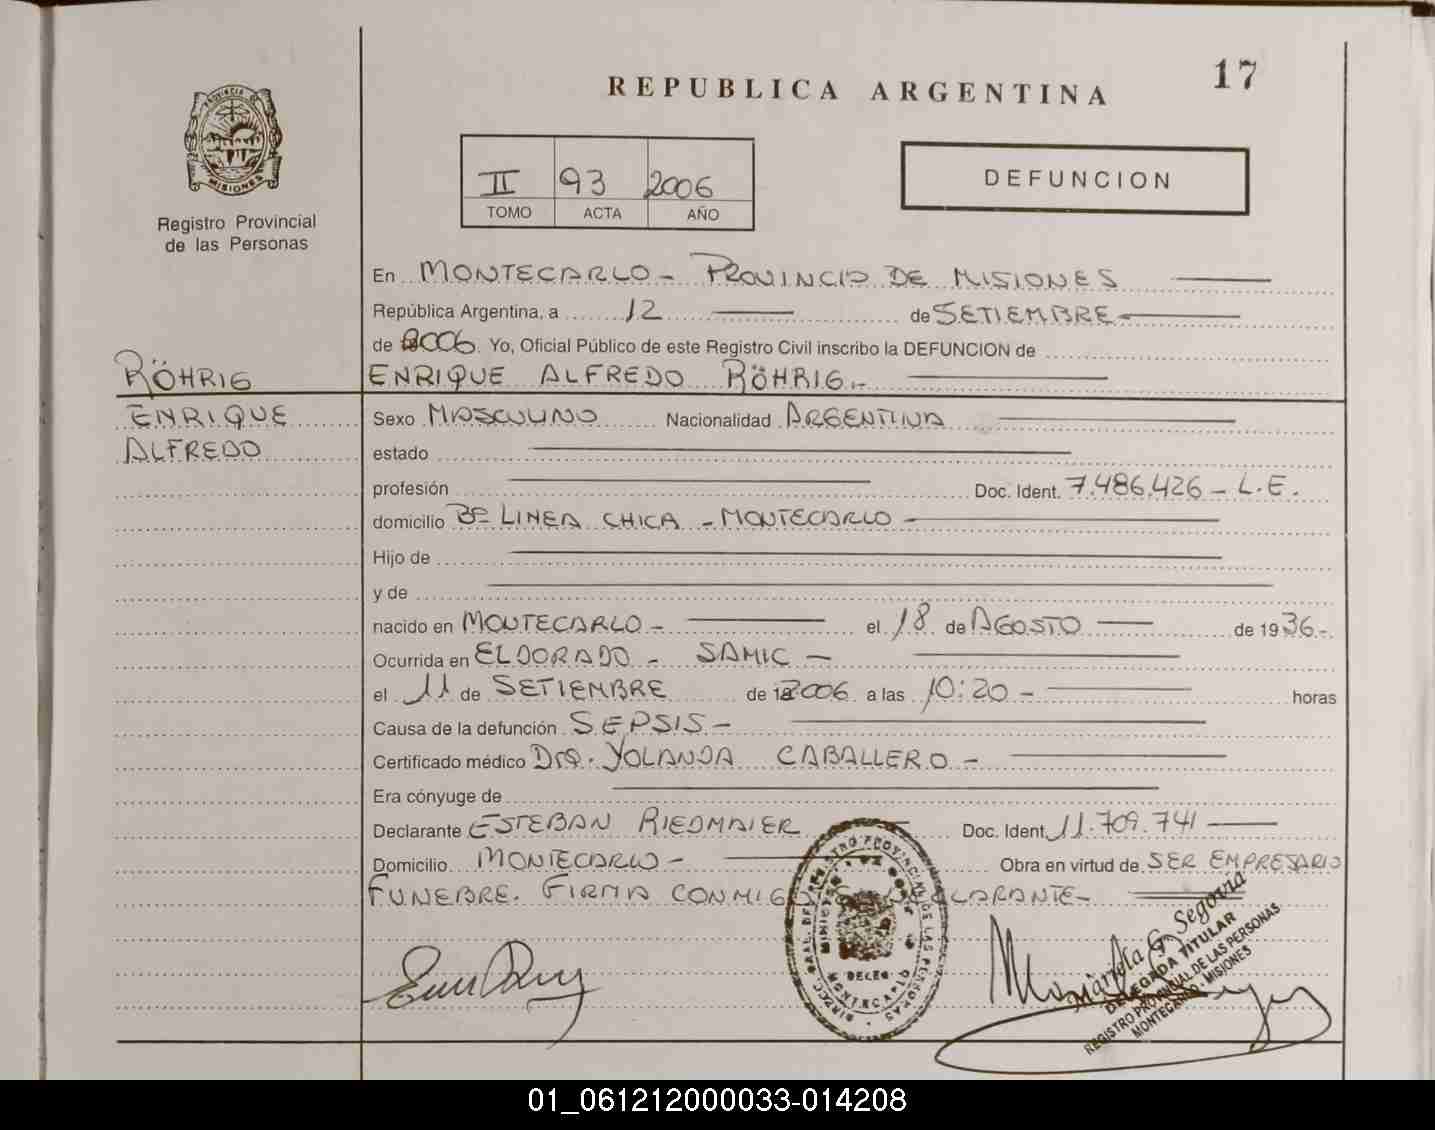 17
REPUBLICA ARGENTINA
PROVINCIA DE
MISIONES
Registro Provincial
de las Personas
II 93 2006
TOMO ACTA AÑO
DEFUNCION
En MONTECARLO - PROVINCIA DE MISIONES
República Argentina, a 12 de SETIEMBRE
de 2006. Yo, Oficial Público de este Registro Civil inscribo la DEFUNCION de
RÖHRIG
ENRIQUE
ALFREDO
ENRIQUE ALFREDO RÖHRIG.-
Sexo MASCULINO Nacionalidad ARGENTINA
estado
profesión Doc. Ident. 7.486.426 - L.E.
domicilio Bº LINEA CHICA - MONTECARLO
Hijo de
y de
nacido en MONTECARLO - el 18 de AGOSTO de 1936.-
Ocurrida en ELDORADO - SAMIC -
el 11 de SETIEMBRE de 2006 a las 10:20 - horas
Causa de la defunción SEPSIS -
Certificado médico Dra. YOLANDA CABALLERO -
Era cónyuge de
Declarante ESTEBAN RIEDMAIER Doc. Ident. 11.709.741
Domicilio MONTECARLO - Obra en virtud de SER EMPRESARIO
FUNEBRE. FIRMA CONMIGO DECLARANTE -
Mariela G. Segovia
DELEGADA TITULAR
REGISTRO PROVINCIAL DE LAS PERSONAS
MONTECARLO - MISIONES
01_061212000033-014208